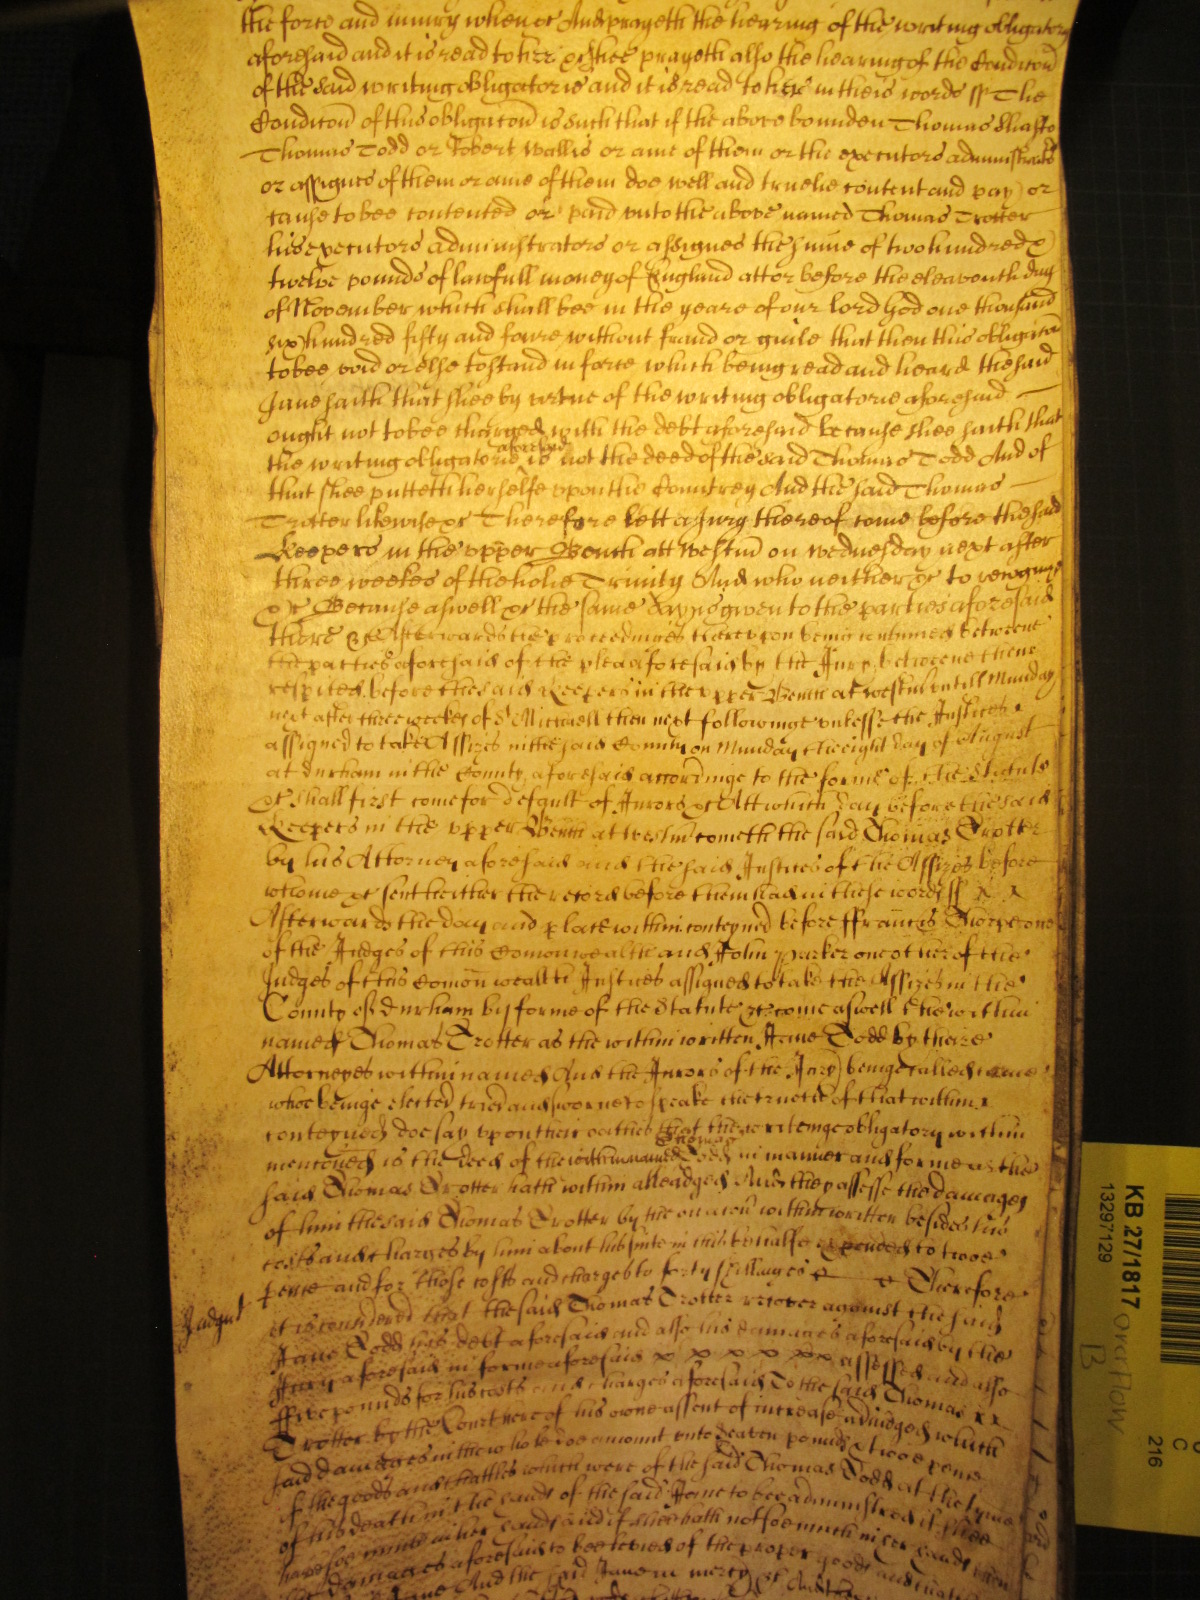 the force and iniury when &c And prayeth the hearing of the writing obligatory
aforesaid and it is read to her &c shee prayeth also the hearing of the Condicon
of the said writing obligatorie and it is read to her in theis words ss The
Condicon of this obligacon is such that if the above bounden Thomas Shafto
Thomas Todd or Robert Wallis or anie of them or the executors administrators
or assignes of them or anie of them doe well and truelie content and pay or
cause to bee contented or paid unto the above named Thomas Trotter
his executors administrators or assignes the summe of two hundred &
twelve pounds of lawfull money of England att or before the eleaventh day
of November which shall bee in the yeare of our lord God one thousand
six hundred fifty and foure without fraud or guile that then this obligacon
to bee void or else to stand in force which being read and heard the said
Jane saith that shee by vertue of the writing obligatorie aforesaid
ought not to bee charged with the debt aforesaid because shee saith that
the writing obligatorie aforesaid is not the deed of the said Thomas Todd And of
that shee putteth herselfe upon the Countrey And the said Thomas
Trotter likewise &c Therefore lett a Jury thereof come before the said
Keepers in the upper Bench att Westm on wednesday next after
three weekes of the holie Trinity And who neither &c to recognize
&c Because aswell &c the same day is given to the parties aforesaid
there &c Afterwards the proces thereupon being continued betweene
the parties aforesaid of the plea aforesaid by the Jury betweene them
respited before the said Keepers in the upper Bench at Westm untill Munday
next after three weekes of St Michaell then next followinge unlesse the Justices
assigned to take Assizes in the said County on Munday the eight day of August
at Durham in the County aforesaid accordinge to the forme of the Statute
&c shall first come for default of Jurors &c Att which day before the said
Keepers in the upper Bench at Westm cometh the said Thomas Trotter
by his Attorney aforesaid and the said Justices of the Assizes before
whome &c sent heither the record before them had in these words ss
Afterwards the day and place within conteyned before ffrancis Thorpe one
of the Judges of this Comonwealth and John Parker one other of the
Judges of this Comonwealth Justices assigned to take the Assizes in the
County of Durham by forme of the Statute &c come aswell the within
named Thomas Trotter as the within written Jane Todd by theire
Attorneyes within named And the Jurors of the Jury beinge called came
whoe beinge elected tried and sworne to speake the trueth of that within
conteyned doe say upon their oathes that the writeinge obligatory within
mencoued is the deed of the within named Thomas Todd in manner and forme as the
said Thomas Trotter hath within alleadged And they assesse the damages
of him the said Thomas Trotter by the occacon within written besides his
costs and charges by him about his suite in this behalfe expended to twoe
pence and for those costs and charges to forty shillinges &c Therefore
Judgmt
it is considered that the said Thomas Trotter recover against the said
Jane Todd his debt aforesaid and also his damages aforesaid by the
Jury aforesaid in forme aforesaid assessed and also
ffive pounds for his costs and charges aforesaid To the said Thomas
Trotter by the Court here of his owne assent of increase adiudged which
said damages in the whole doe amount unto seaven pounds & twoe pence
of the goods and chattles which were of the said Thomas Todd at the tyme
of his death in the hands of the said Jane to bee administred if shee
have soe much in her hands and if shee hath not soe much in her hands then
the damages aforesaid to bee levied of the proper goods and chattles
Jane And the said Jane in mercy &c
KB 27/1817 overflow
13297129
B
C
216